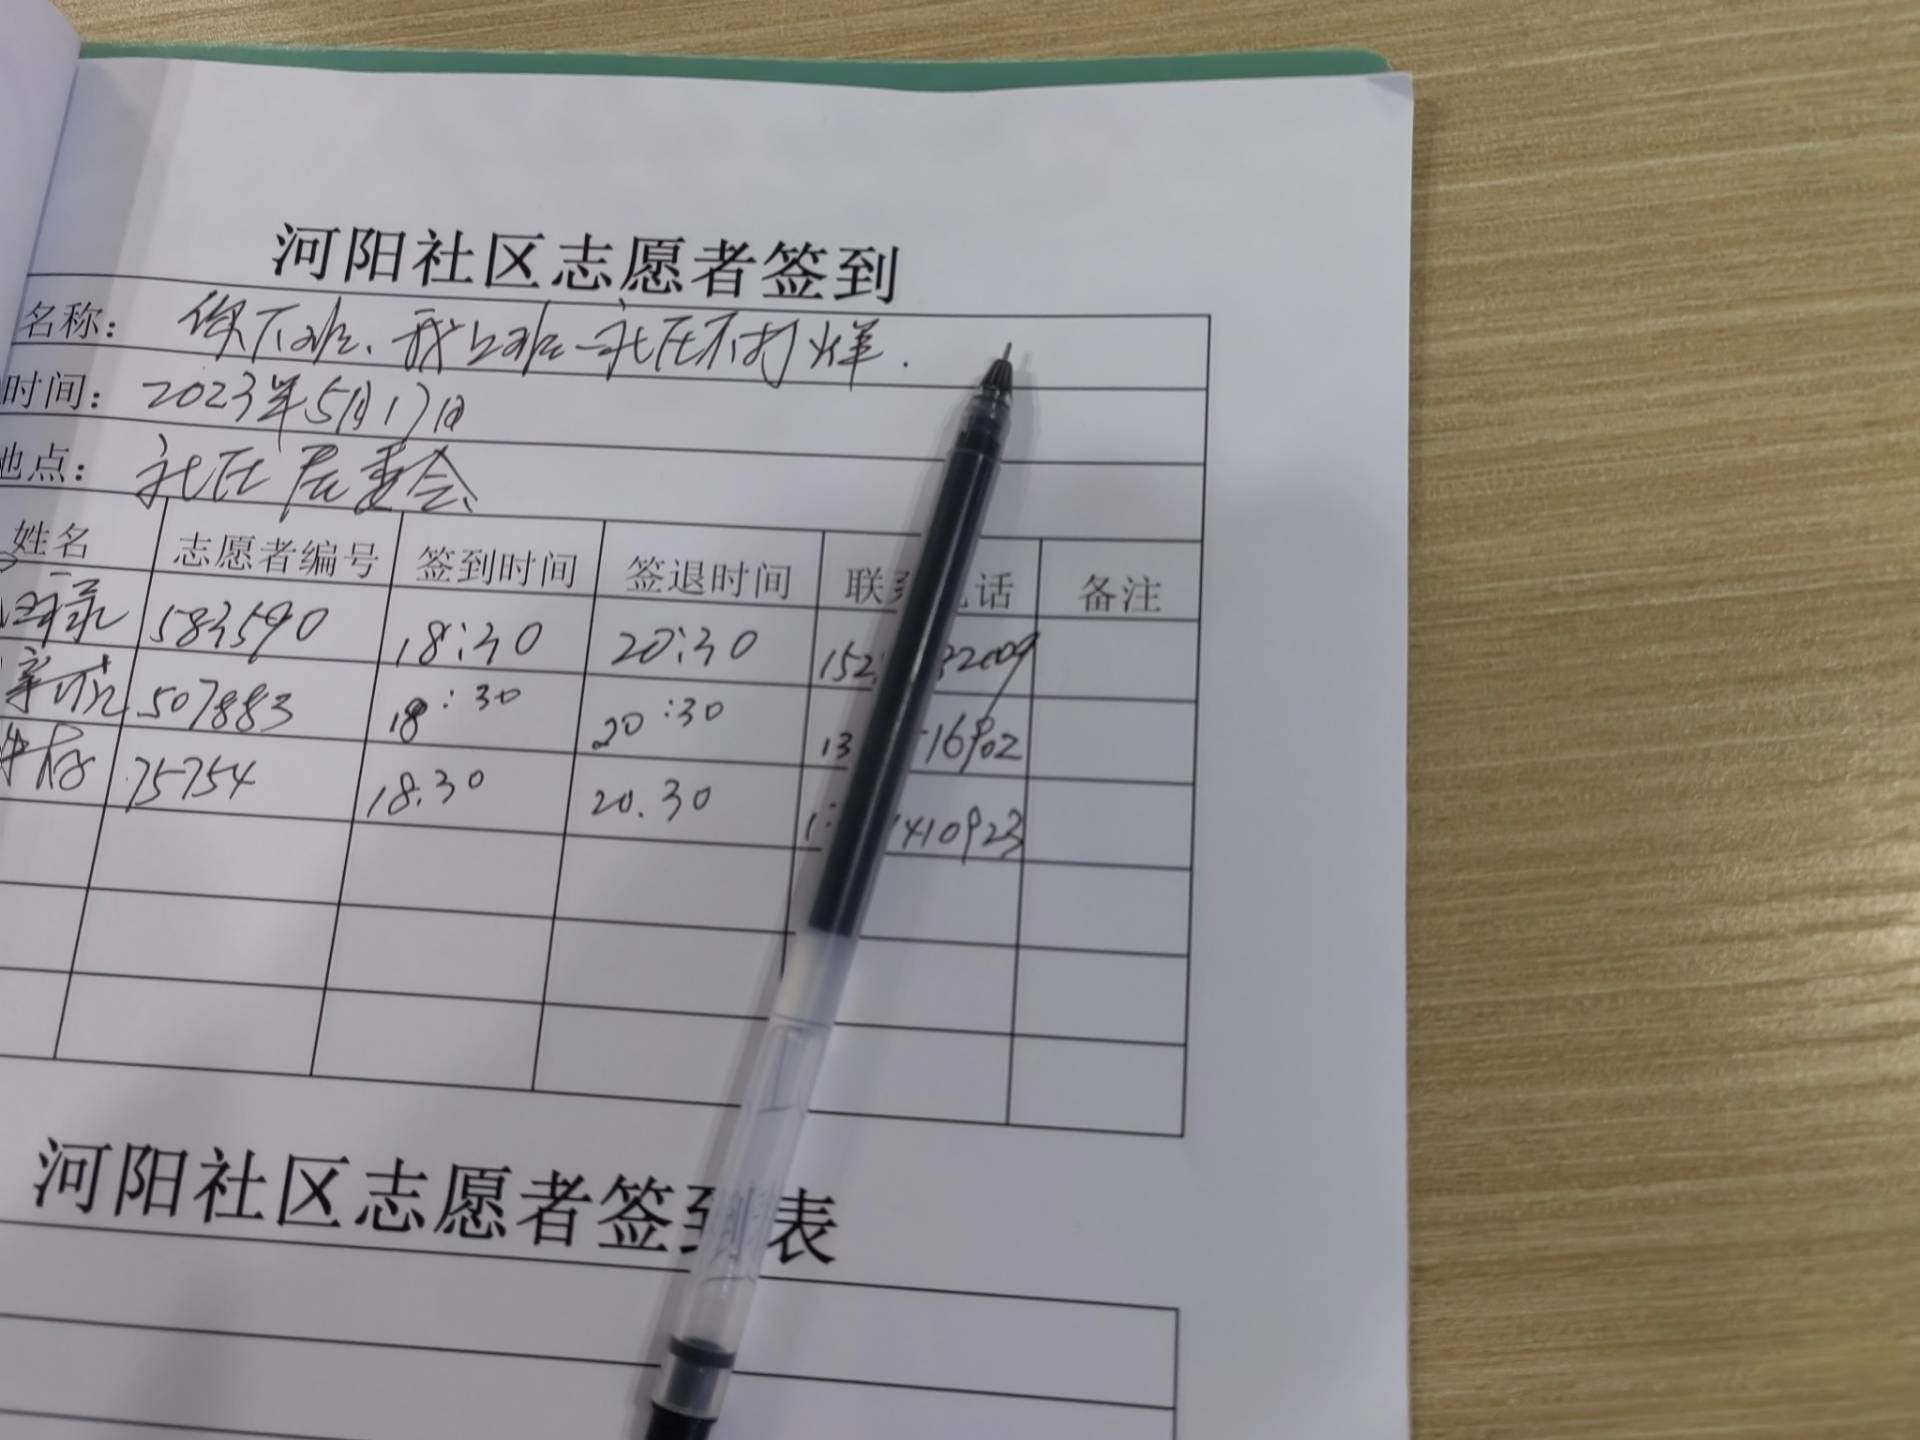 河阳社区志愿者签到
名称： 你下班、我上班—社区不打烊.
时间： 2023年5月17日
地点： 社区居委会
姓名 志愿者编号 签到时间 签退时间 联 话 备注
583590 18:30 20:30 152 32009
507883 18:30 20:30 13 16902
75754 18.30 20.30 1 1410923
河阳社区志愿者签到表